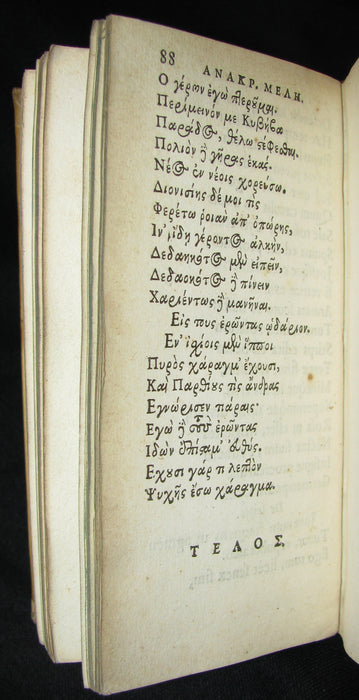 88 ΑΝΑΚΡ. ΜΕΛΗ.
Ο γέρων ἐγὼ πτερῦμαι.
Περιμεινόν με Κυβήβα
Παράδος, θέλω σέφεσθαι.
Πολιὸν ἢ γῆρας ἑκάς.
Νέος ἐν νέοις χορεύσω.
Διονισίης δέ μοι τὶς
Φερέτω ῥοιαν ἀπ' ὀπώρης,
Ιν' ἴδη γέροντος ἀλκὴν,
Δεδαηκότος μὲν εἰπεῖν,
Δεδαοκότος ἢ πίνειν
Χαριέντως ἢ μανῆναι.
Εἰς τους ἐρῶντας ᾠδάριον.
Εν' ἰχίοις μὲν ἵπποι
Πυρὸς χάραγμ' ἔχουσι,
Καὶ Παρθίους τὶς ἄνδρας
Εγνώρισεν τιάραις·
Εγὼ ἢ τοὺς ἐρῶντας
Ιδὼν ἐπίσταμ' εὐθύς.
Εχυσι γάρ τι λεπτὸν
Ψυχῆς ἔσω χάραγμα.
ΤΕΛΟΣ